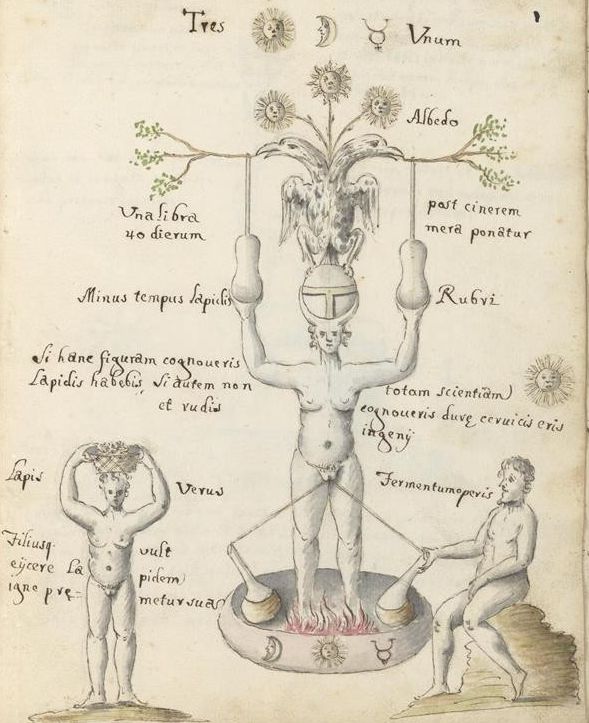 Tres Vnum
Albedo
Vna libra
40 dierum
post cinerem
mera ponatur
Minus tempus Lapidis
Rubri
Si hanc figuram cognoueris
Lapidis habebis, Si autem non
et rudis
totam scientiam
cognoueris duręceruicis eris
ingenij
Lapis
Verus
Fermentum operis
Filiusq.
eijcere La
igne pre=
vult
pidem
metur sua